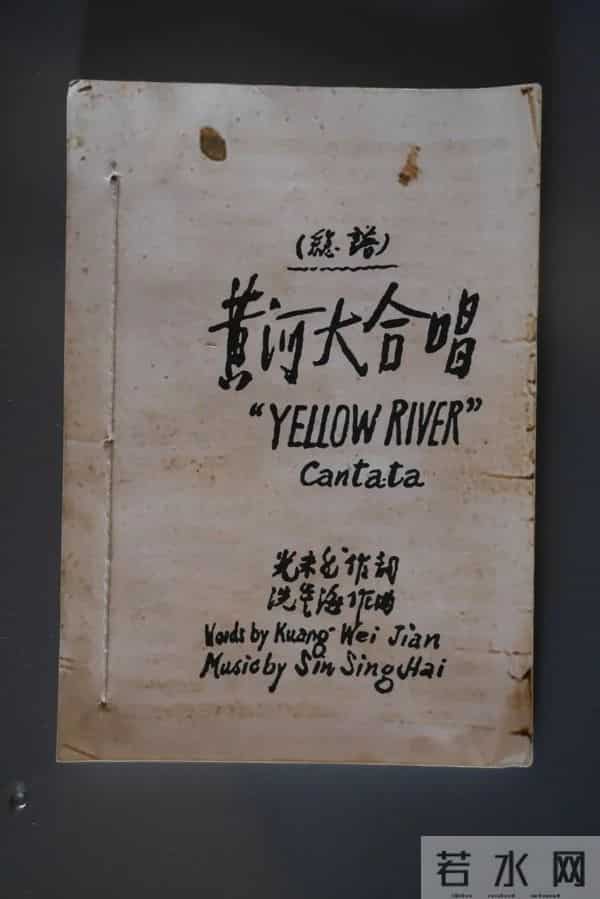 (總譜)
黄河大合唱
"YELLOW RIVER"
Cantata
光未然作詞
洗星海作曲
Words by Kuang Wei Jian
Music by Sin Sing Hai
若水网